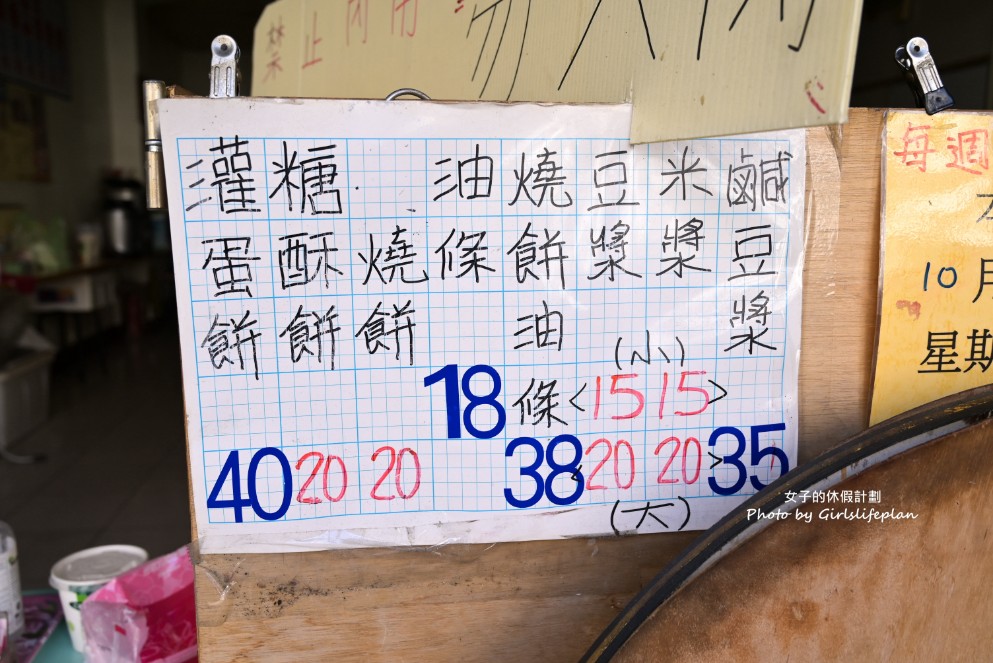 禁止
灌蛋餅 40
糖酥餅 20
燒餅 20
油條 18
燒餅油條 38
豆漿 (小) 15 20 (大)
米漿 (小) 15 20 (大)
鹹豆漿 35
每週
10月
星期
女子的休假計劃
Photo by Girlslifeplan